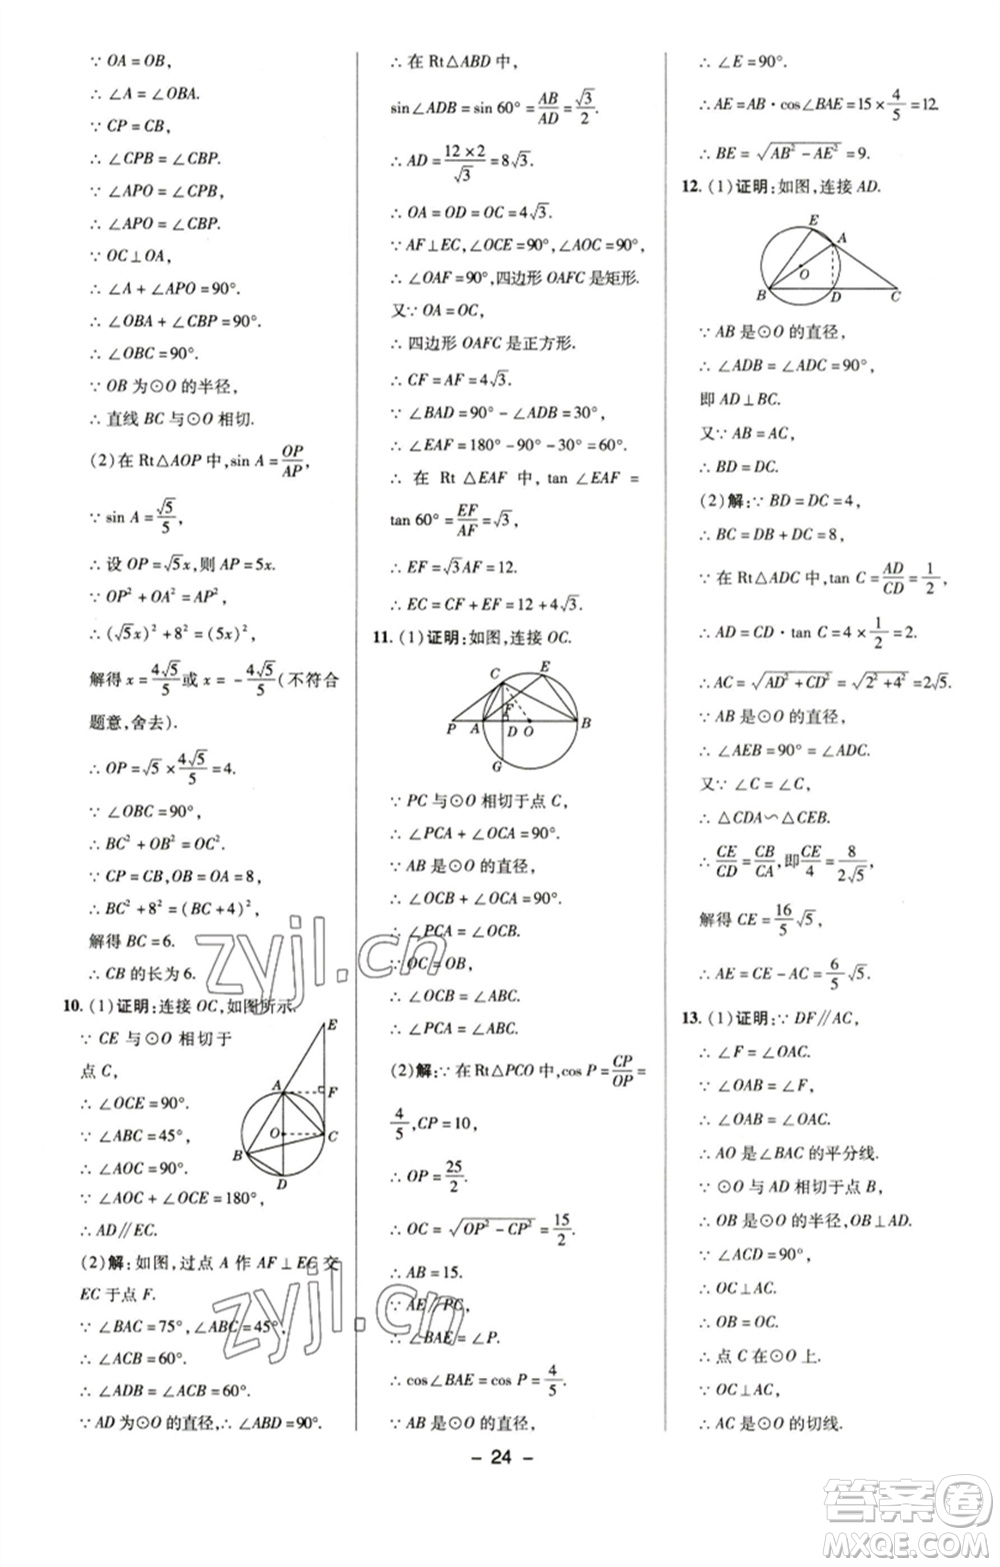 ∵ OA = OB,
∴ ∠A = ∠OBA.
∵ CP = CB,
∴ ∠CPB = ∠CBP.
∵ ∠APO = ∠CPB,
∴ ∠APO = ∠CBP.
∵ OC⊥OA,
∴ ∠A + ∠APO = 90°.
∴ ∠OBA + ∠CBP = 90°.
∴ ∠OBC = 90°.
∵ OB 为⊙O 的半径,
∴ 直线 BC 与⊙O 相切.
(2)在 Rt△AOP 中,sin A = OP/AP,
∵ sin A = √5/5,
∴ 设 OP = √5x,则 AP = 5x.
∵ OP² + OA² = AP²,
∴ (√5x)² + 8² = (5x)²,
解得 x = 4√5/5 或 x = - 4√5/5 (不符合
题意,舍去).
∴ OP = √5 × 4√5/5 = 4.
∵ ∠OBC = 90°,
∴ BC² + OB² = OC².
∵ CP = CB,OB = OA = 8,
∴ BC² + 8² = (BC + 4)²,
解得 BC = 6.
∴ CB 的长为 6.
10. (1)证明:连接 OC,如图所示.
∵ CE 与⊙O 相切于
点 C,
∴ ∠OCE = 90°.
∵ ∠ABC = 45°,
∴ ∠AOC = 90°.
∵ ∠AOC + ∠OCE = 180°,
∴ AD∥EC.
E
A
F
O
C
B
D
(2)解:如图,过点 A 作 AF⊥EC 交
EC 于点 F.
∵ ∠BAC = 75°,∠ABC = 45°,
∴ ∠ACB = 60°.
∴ ∠ADB = ∠ACB = 60°.
∵ AD 为⊙O 的直径,∴ ∠ABD = 90°.
∴ 在 Rt△ABD 中,
sin∠ADB = sin 60° = AB/AD = √3/2.
∴ AD = 12 × 2/√3 = 8√3.
∴ OA = OD = OC = 4√3.
∵ AF⊥EC,∠OCE = 90°,∠AOC = 90°,
∴ ∠OAF = 90°,四边形 OAFC 是矩形.
又∵ OA = OC,
∴ 四边形 OAFC 是正方形.
∴ CF = AF = 4√3.
∵ ∠BAD = 90° - ∠ADB = 30°,
∴ ∠EAF = 180° - 90° - 30° = 60°.
∴ 在 Rt△EAF 中, tan ∠EAF =
tan 60° = EF/AF = √3,
∴ EF = √3AF = 12.
∴ EC = CF + EF = 12 + 4√3.
11. (1)证明:如图,连接 OC.
C
E
F
P
A
D
O
B
G
∵ PC 与⊙O 相切于点 C,
∴ ∠PCA + ∠OCA = 90°.
∵ AB 是⊙O 的直径,
∴ ∠OCB + ∠OCA = 90°.
∴ ∠PCA = ∠OCB.
∵ OC = OB,
∴ ∠OCB = ∠ABC.
∴ ∠PCA = ∠ABC.
(2)解:∵ 在 Rt△PCO 中,cos P = CP/OP =
4/5,CP = 10,
∴ OP = 25/2.
∴ OC = √(OP² - CP²) = 15/2.
∴ AB = 15.
∵ AE∥PC,
∴ ∠BAE = ∠P.
∴ cos∠BAE = cos P = 4/5.
∵ AB 是⊙O 的直径,
∴ ∠E = 90°.
∴ AE = AB·cos∠BAE = 15 × 4/5 = 12.
∴ BE = √(AB² - AE²) = 9.
12. (1)证明:如图,连接 AD.
E
A
O
B
D
C
∵ AB 是⊙O 的直径,
∴ ∠ADB = ∠ADC = 90°,
即 AD⊥BC.
又∵ AB = AC,
∴ BD = DC.
(2)解:∵ BD = DC = 4,
∴ BC = DB + DC = 8,
∵ 在 Rt△ADC 中,tan C = AD/CD = 1/2,
∴ AD = CD·tan C = 4 × 1/2 = 2.
∴ AC = √(AD² + CD²) = √(2² + 4²) = 2√5.
∵ AB 是⊙O 的直径,
∴ ∠AEB = 90° = ∠ADC.
又∵ ∠C = ∠C,
∴ △CDA∽△CEB.
∴ CE/CD = CB/CA,即 CE/4 = 8/2√5,
解得 CE = 16/5 √5,
∴ AE = CE - AC = 6/5 √5.
13. (1)证明:∵ DF∥AC,
∴ ∠F = ∠OAC.
∵ ∠OAB = ∠F,
∴ ∠OAB = ∠OAC.
∴ AO 是∠BAC 的平分线.
∵ ⊙O 与 AD 相切于点 B,
∴ OB 是⊙O 的半径,OB⊥AD.
∵ ∠ACD = 90°,
∴ OC⊥AC.
∴ OB = OC.
∴ 点 C 在⊙O 上.
∵ OC⊥AC,
∴ AC 是⊙O 的切线.
- 24 -
zyjl.cn
zyjl.cn
答案卷
MXQE.COM